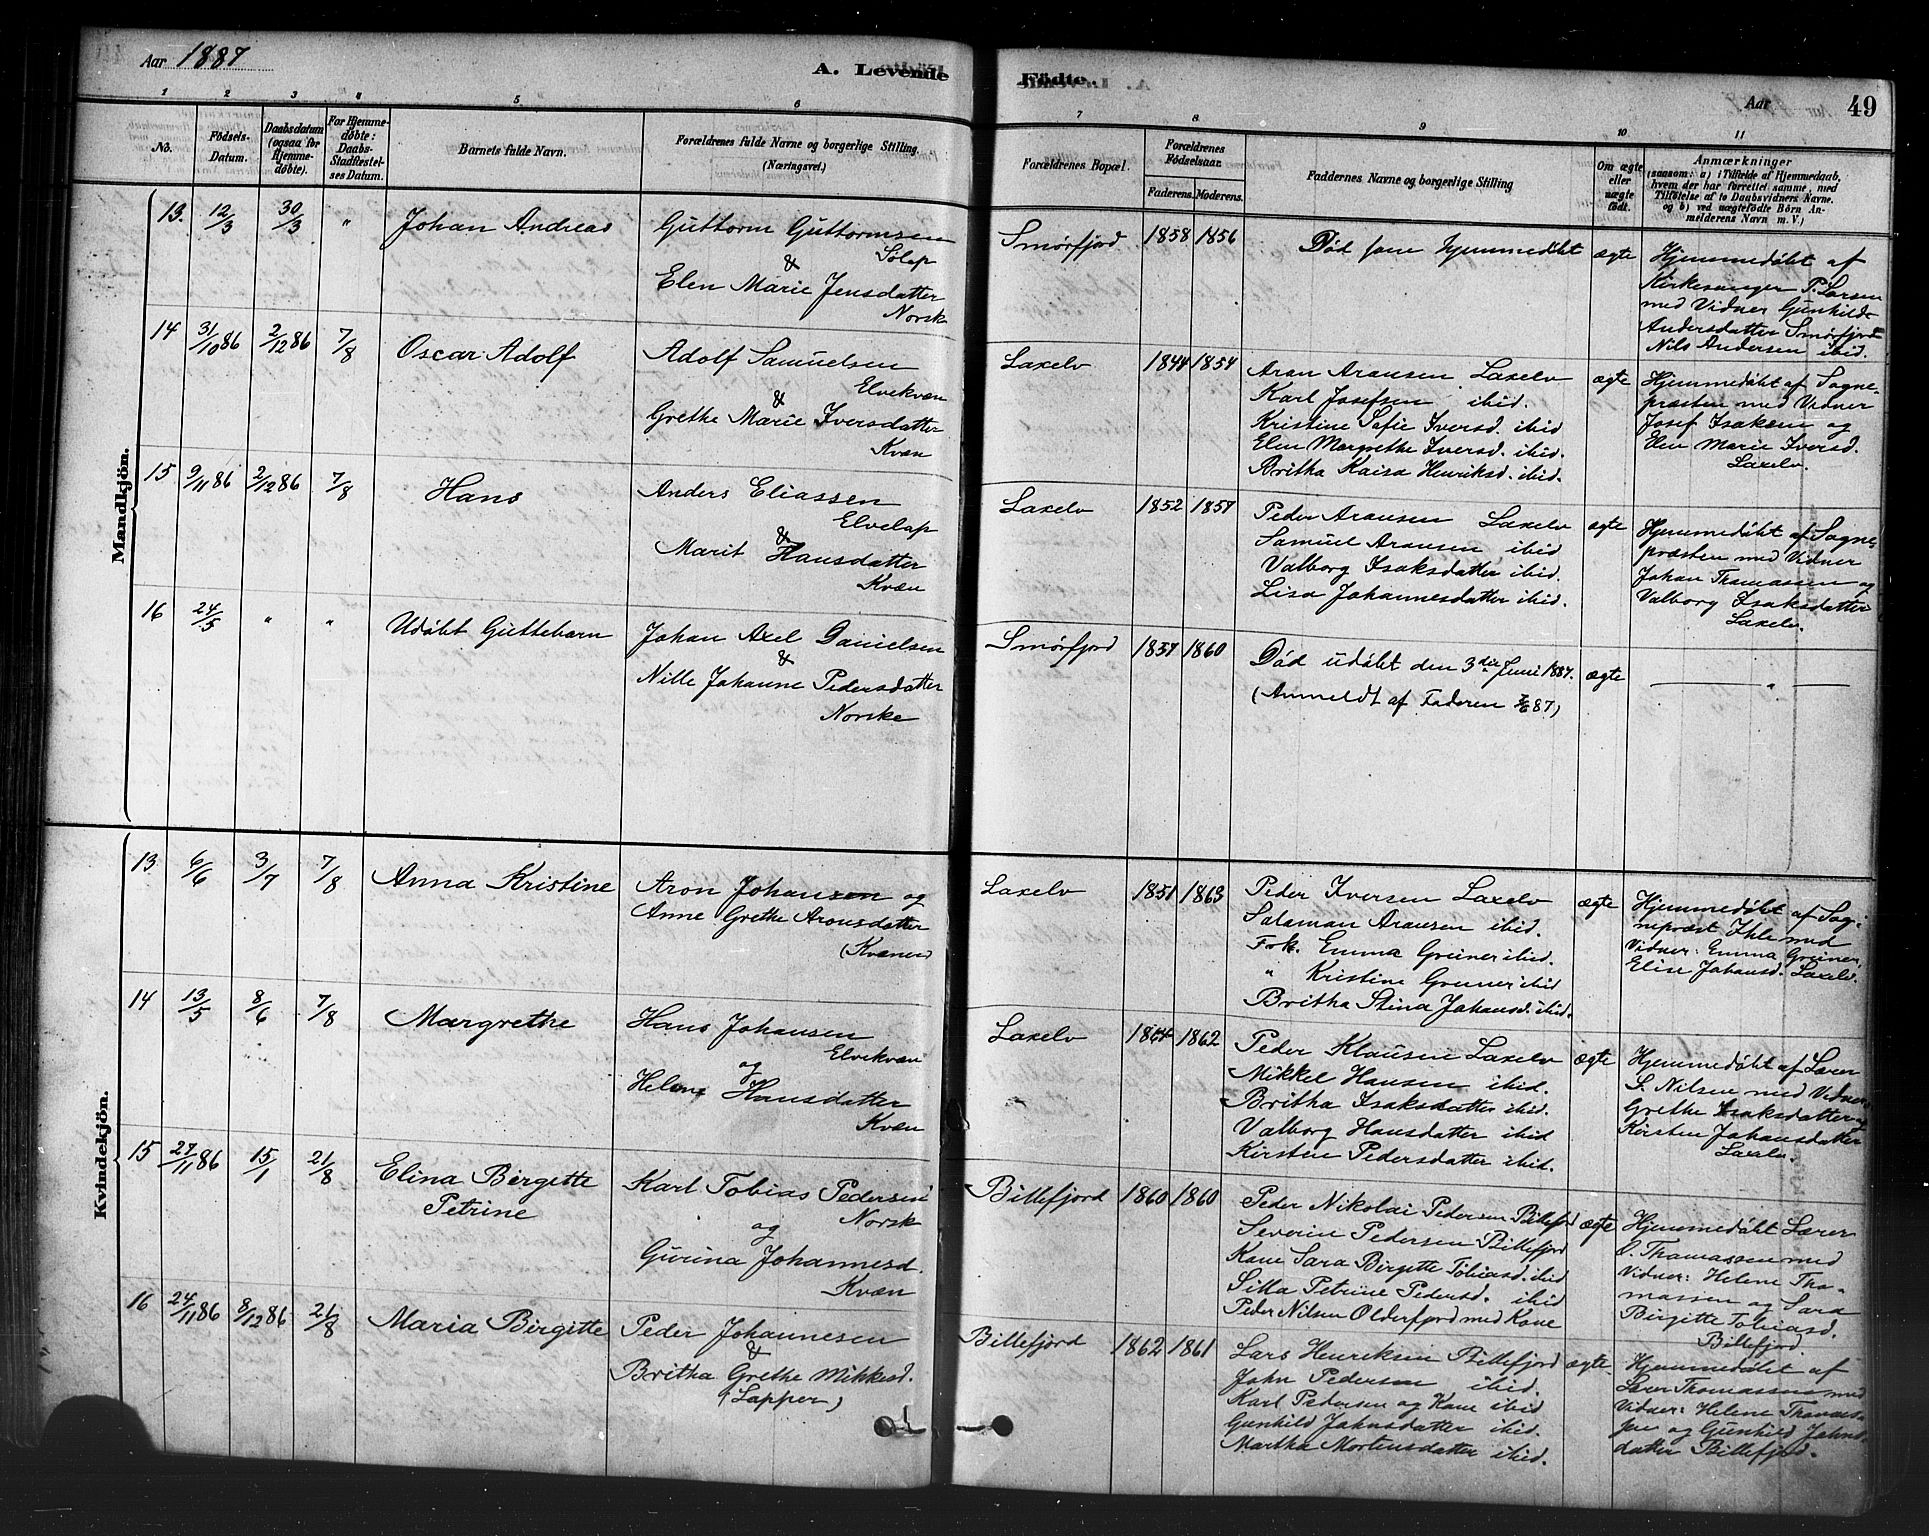 Aar 1887
A. Levende
Födte.
Aar
49
1 2 3 4 5 6 7 8 9 10 11
No.
Fødsels-Datum.
Daabsdatum (ogsaa for Hjemme-døbte).
For Hjemme-døbte: Daabs-Stadfæstel-ses Datum.
Barnets fulde Navn.
Forældrenes fulde Navne og borgerlige Stilling.
(Næringsvei.)
Forældrenes Bopæl.
Forældrenes Fødselsaar.
Faderens. Moderens.
Faddernes Navne og borgerlige Stilling
Om ægte eller uægte født.
Anmærkninger
(saasom: a) i Tilfælde af Hjemmedaab, hvem der har forrettet samme, med Tilføielse af to Daabsvidners Navne, og b) ved uægtefødte Börn An-melderens Navn m. V.)
Mandkjön.
13. 12/3 30/3 " Johan Andreas
Guttorm Guttormsen
Sölap
&
Elen Marie Jensdatter
Norsk
Smørfjord 1858 1856 Död som hjemmedöbt ægte
Hjemmedöbt af
Kirkesanger P. Larsen
med Vidner Gunhild
Andersdatter Smørfjord
Nils Andersen ibid.
14 31/10 86 2/12 86 7/8 Oscar Adolf
Adolf Samuelsen
Elvekvæn
&
Grethe Marie Iversdatter
Kvæn
Laxelv 1844 1854
Aron Aronsen Laxelv
Karl Josefsen ibid.
Kristine Sofie Iversd. ibid
Elen Margrethe Iversd. ibid.
Britha Kaisa Henriksd. ibid.
ægte
Hjemmedöbt af Sogne-
præsten med Vidner
Josef Isaksen og
Elen Marie Iversd.
Laxelv.
15 9/11 86 2/12 86 7/8 Hans
Anders Eliassen
Elvelap
&
Marit Hansdatter
Kvæn
Laxelv 1852 1857
Peder Aronsen Laxelv
Samuel Aronsen ibid
Valborg Isaksdatter ibid.
Lisa Johannesdatter ibid.
ægte
Hjemmedöbt af Sogne-
præsten med Vidner
Johan Thomassen og
Valborg Isaksdatter
Laxelv.
16 24/5 " " Udöbt Guttebarn
Johan Axel Danielsen
&
Nille Johanne Pedersdatter
Norske
Smørfjord 1857 1860
Död udöbt den 3die Juni 1887.
(Anmeldt af Faderen 7/6 87)
ægte
"
Kvindekjön.
13 6/6 3/7 7/8 Anna Kristine
Aron Johansen og
Anne Grethe Aronsdatter
(Kvæner)
Laxelv 1851 1863
Peder Iversen Laxelv
Salamon Aronsen ibid.
Frk. Emma Greiner ibid.
" Kristine Greiner ibid
Britha Stina Johansd. ibid.
ægte
Hjemmedöbt af Sog-
nepræst Ihle med
Vidner: Emma Greiner,
Elise Johansd. Laxelv.
14 13/5 8/6 7/8 Margrethe
Hans Johansen
Elvekvæn
og
Helene Hansdatter
Kvæn
Laxelv 1864 1862
Peder Klausen Laxelv
Mikkel Hansen ibid.
Britha Isaksdatter ibid.
Valborg Hansdatter ibid
Kirsten Pedersdatter ibid.
ægte
Hjemmedöbt af Lærer
S. Nilsen med Vidner
Grethe Isaksdatter og
Kirsten Johansdatter
Laxelv.
15 27/11 86 15/1 21/8 Elina Birgitte
Petrine
Karl Tobias Pedersen
Norsk
og
Gurina Johannesd.
Kvæn
Billefjord 1860 1860
Peder Nikolai Pedersen Billefjord
Severin Pedersen Billefjord
Kone Sara Birgitte Tobiasd. ibid
Silla Petrine Pedersd. ibid
Peder Nilsen Olderfjord med Kone
ægte
Hjemmedöbt Lærer
O. Thomassen med
Vidner: Helene Tho-
massen og Sara
Birgitte Tobiasd.
Billefjord.
16 24/11 86 8/12 86 21/8 Maria Birgitte
Peder Johannesen
&
Britha Grethe Mikkelsd.
(Lapper)
Billefjord 1862 1861
Lars Henriksen Billefjord
John Pedersen ibid.
Karl Pedersen og Kone ibid
Gunhild Johnsdatter ibid.
Martha Mortensdatter ibid.
ægte
Hjemmedöbt af
Lærer Thomassen med
Vidner: Helene Thomas-
sen og Gunhild Johns-
datter Billefjord.